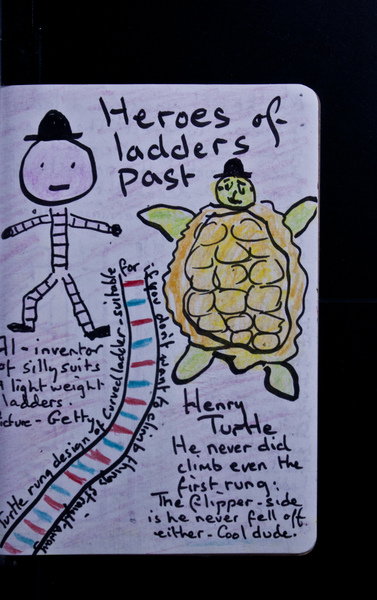 Heroes of
ladders
past
Al - inventor
of silly suits
light weight
ladders.
Picture - Getty
Turtle rung design of curved ladder - suitable for
if you don't want to climb things
straight away
Henry
Turtle
He never did
climb even the
first rung.
The flipper - side
is he never fell off
either - Cool dude.